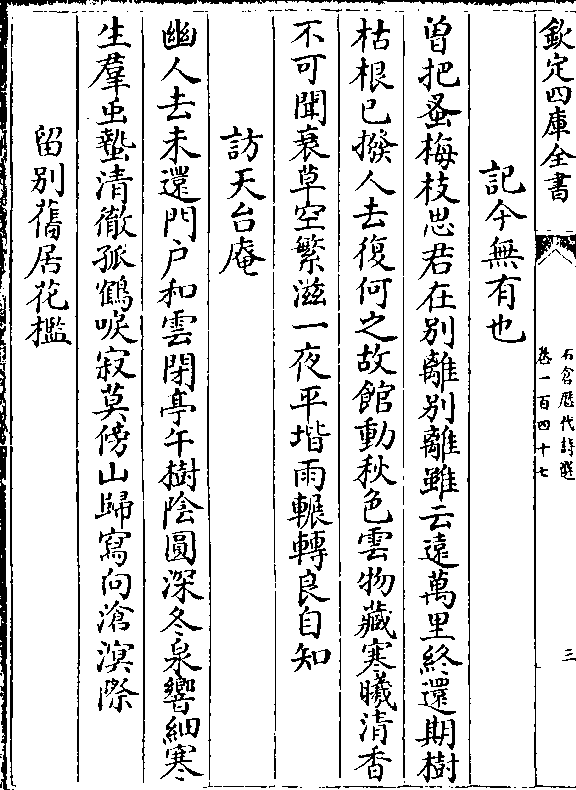 欽定四庫全書
石倉歴代詩選
卷一百四十七
三
記今無有也
曽把蚤梅枝思君在别離别離雖云逺萬里終還期樹
枯根已撥人去復何之故館動秋色雲物藏寒曦清香
不可聞衰草空繁滋一夜平堦雨輾轉良自知
訪天台庵
幽人去未還門户和雲閉亭午樹陰圓深冬泉響細寒
生羣虫蟄清徹孤鶴唳寂莫傍山歸寫向滄溟際
留别舊居花檻